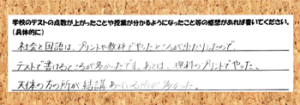 学校のテストの点数が上がったことや授業が分かるようになったこと等の感想があれば書いてください。
(具体的に)
社会と国語は、プリントや教科でやったところが出たりしたので
テストで書けるところが多かったです。あとは、理科のプリントでやった、
天体の方の所が結構あっていた所が多かった。